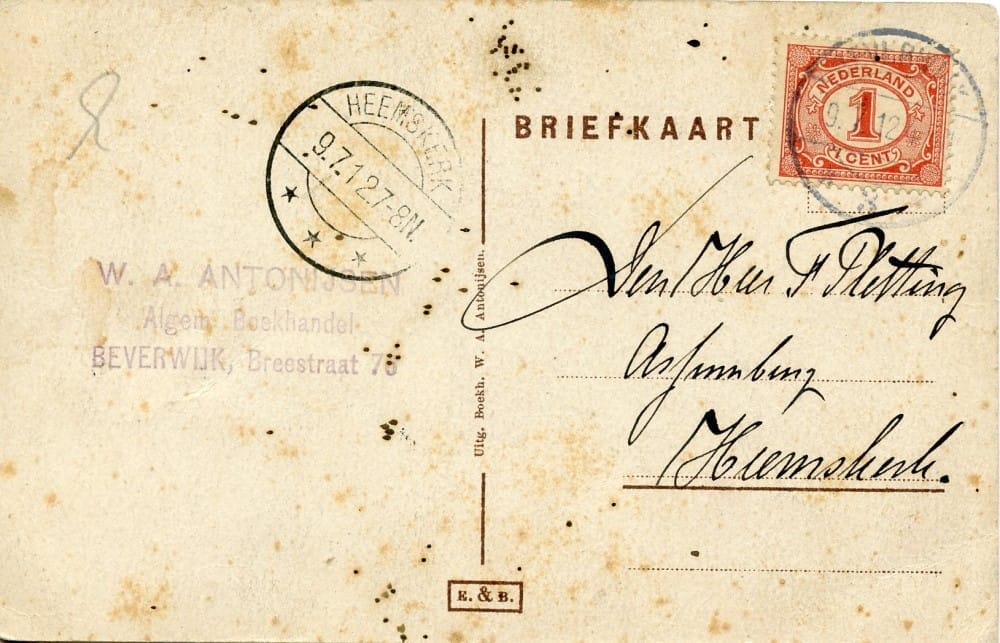 BRIEFKAART
NEDERLAND
1
1 CENT
9.7.12
HEEMSKERK
9.7.12.7-8N.
W. A. ANTONIJSEN
Algem. Boekhandel
BEVERWIJK, Breestraat 75
Uitg. Boekh. W. A. Antonijsen.
Den Heer F Pletting
Assumburg
Heemskerk.
E. & B.